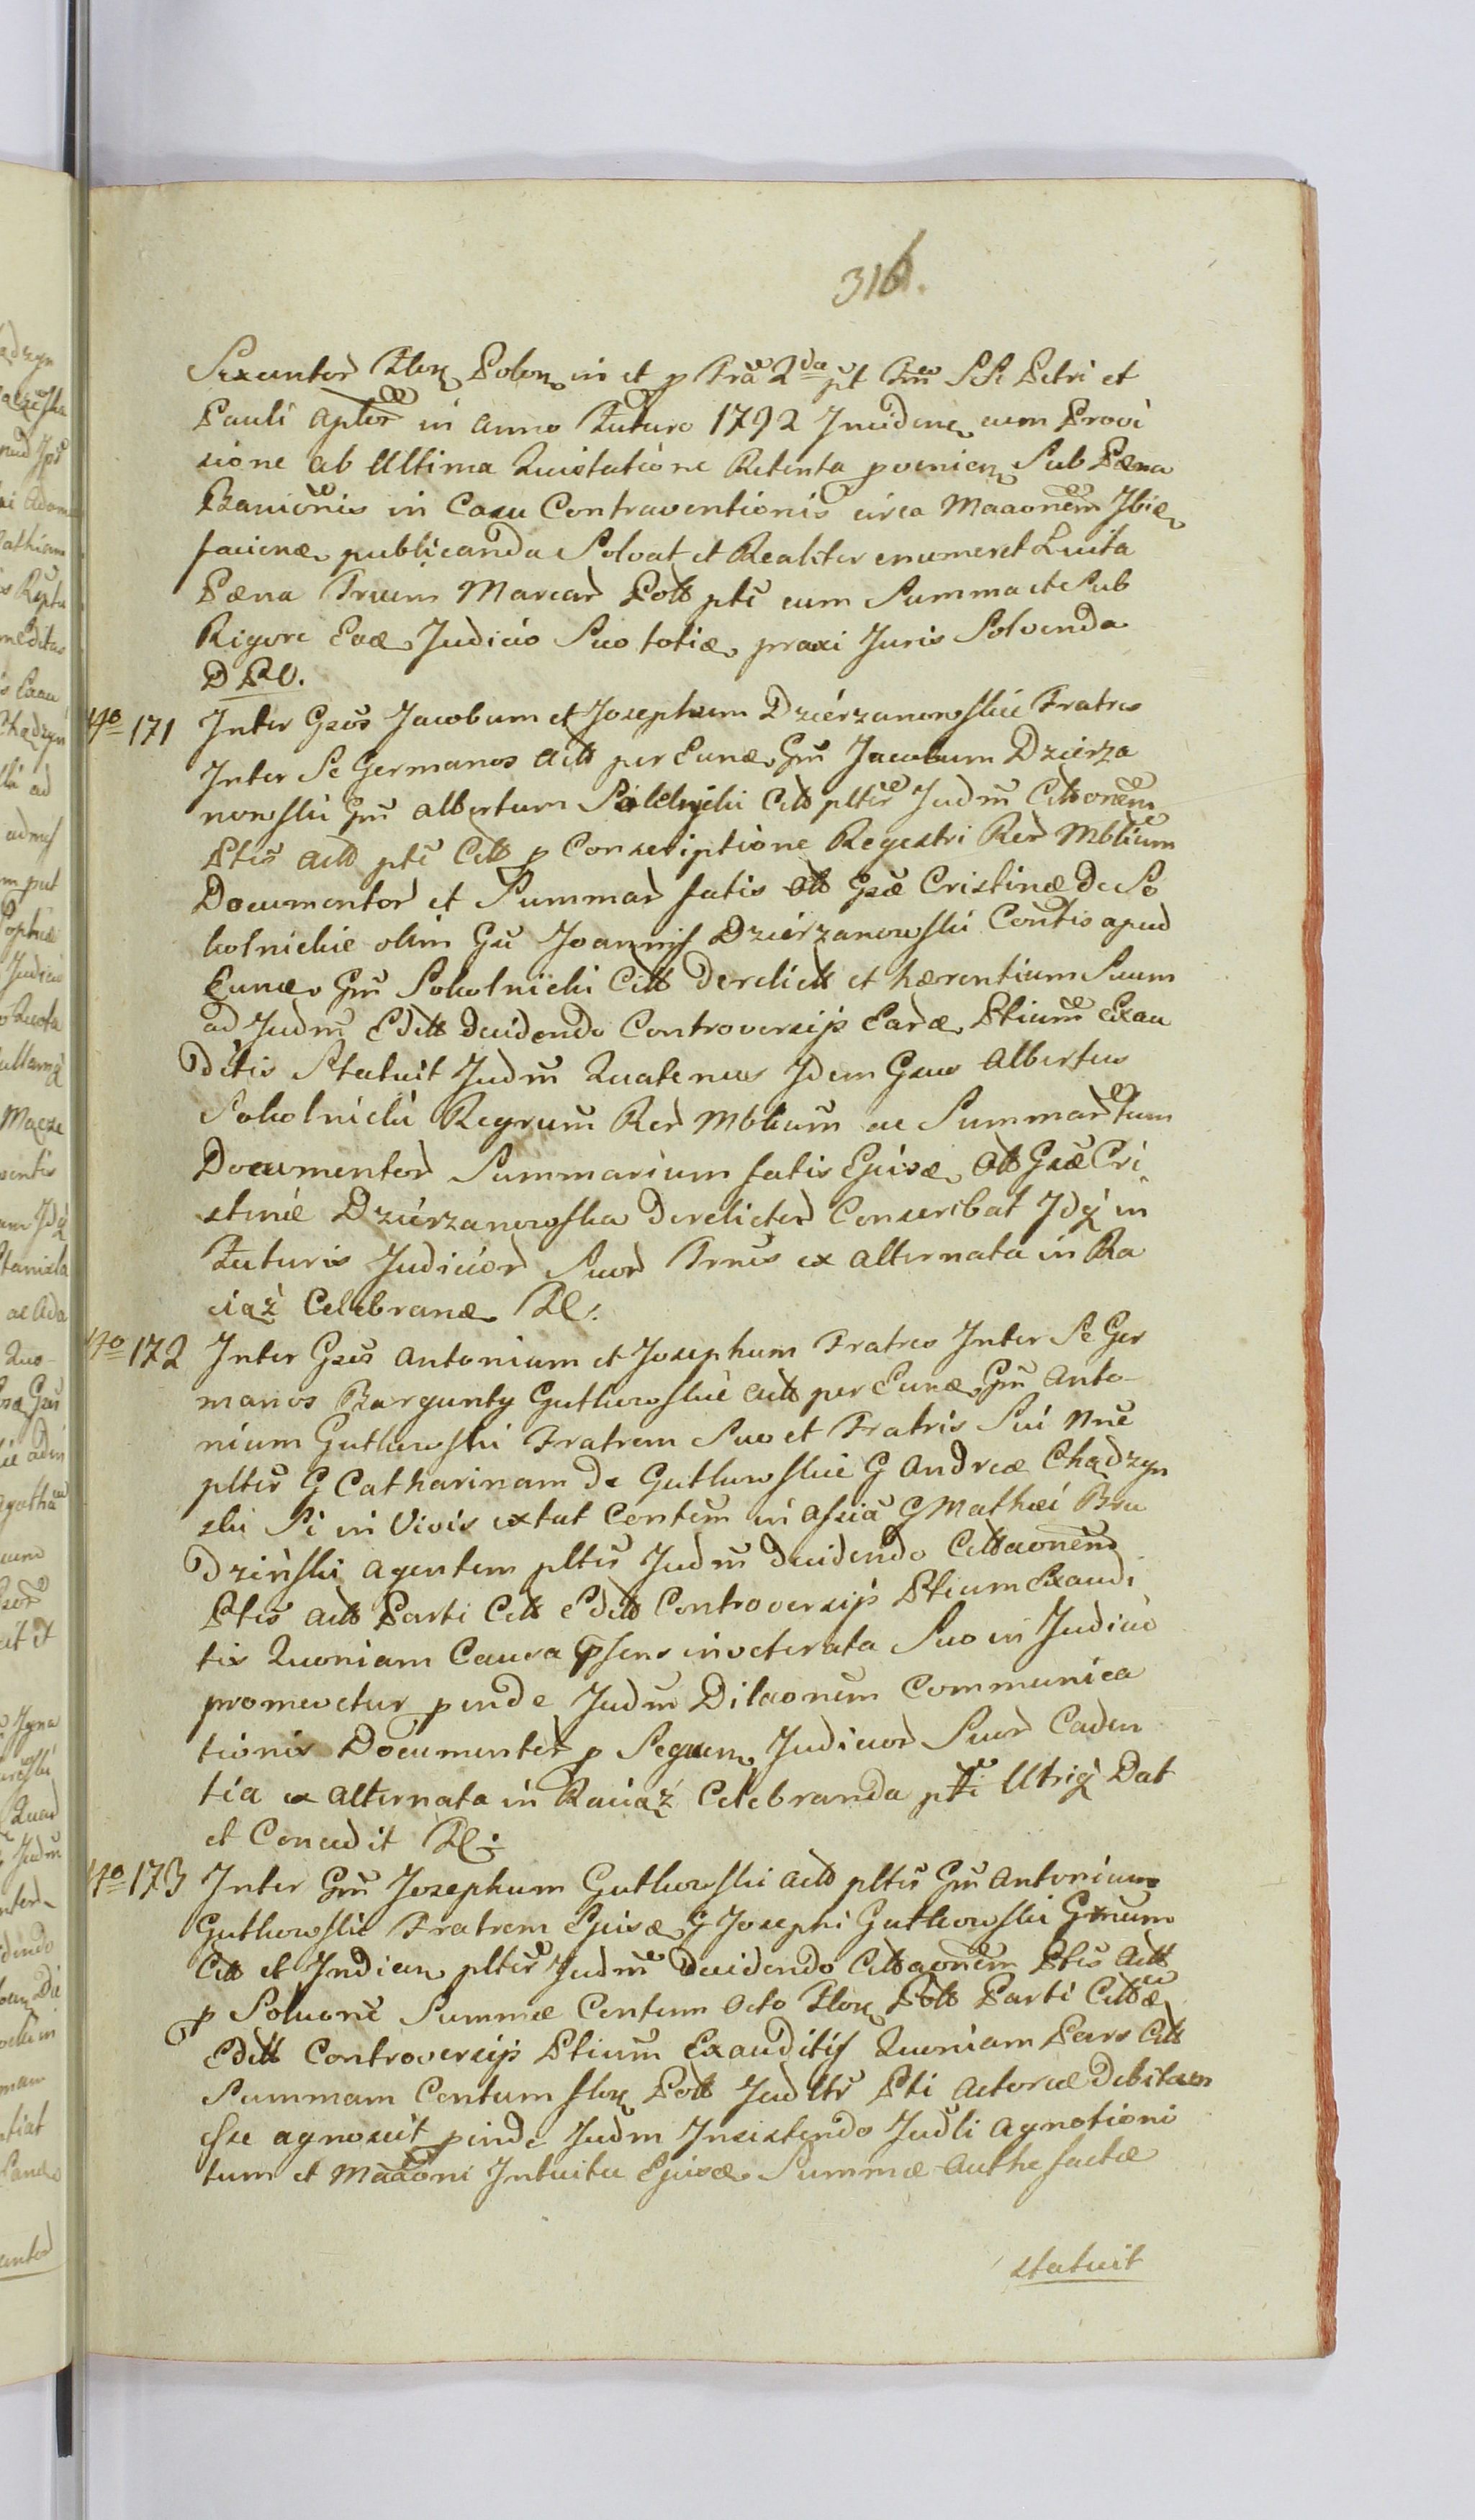 316.
Sexentor Flor Polon in et p Fra 2da pt Fm SS Petri et
Pauli Aplor in Anno Futuro 1792 Inciden cum Provi
sione ab Ultima Quietatione Retenta pvenien Sub Pæna
Banionis in Casu Contraventionis circa Maaonem Ibiæ
faciene publicanda Solvat et Realiter enumeret Luita
Pæna Trium Marcar Poll pti cum Summa et Sub
Rigore Eoæ Judicio Suo totiæ praxi Juris Solvenda
D P U.
Nro 171 Inter Gsos Jacobum et Josephum Dzierzanowskie Fratres
Inter Se Germanos Actt per Eunæ Gm Jacobum Dzierza
nowski Gm Albertum Sokolnicki Citt pltis Judm Cittonem
Ptis Actt pti Citt p Conscriptione Regestri Rer Mblium
Documentor et Summar fatis Ott Gsæ Cristinæ De So
kolnickie olim Gu Joannis Dzierzanowski Contis apud
Eunæ Gm Sokolnicki Citt Derelictt et hærentium Suum
ad Judm Editt Decidendo Controversijs Earæ Ptium Exau
ditis Statuit Judm Quatenus Idem Gsus Albertus
Sokolnicki Regrum Rer Mblium ac Summar tum
Documentor Summarium fatis Ejusæ Ott Gsæ Cri
stinæ Dzierzanowska Derelictor Conscribat Idq in
Futuris Judicior Suor Trnis ex Alternata in Ra
ciąż Celebranæ
Nro 172 Inter Gsos Antonium et Josephum Fratres Inter Se Ger
manos Bargunty Gutkowskie Actt per Eunæ Gm Anto-
nium Gutkowski Fratrem Suo et Fratris Sui Nne
pltis G Catharinam de Gutkowskie G Andreæ Chądzyn
ski Si in Vivis extat Contem in Assia G Mathæi Bru
dzinski Agentem pltis Judm decidendo Cittaonem
Ptis Actt Parti Citt Editt Controversijs Ptium Exaudi
tis Quoniam Causa Psens inveterata Suo in Judicio
promovetur pinde Judm Dilaonem Communica
tionis Documentor p Sequen Judicior Suor Caden
tia ex Alternata in Raciąż Celebranda pti Utriq Dat
et Concedit
Nro 173 Inter Gm Josephum Gutkowski Actt pltis Gm Antonium
Gutkowski Fratrem Ejusæ G Josephi Gutkowski Grnum
Citt et Indicen pltis Judm Decidendo Cittaonem Ptis Actt
p Solvone Summæ Centum Octo Flor Poll Parti Cittæ
Editt Controversijs Ptium Exauditis Quoniam Pars Citt
Summam Centum flor Poll Judltr Pti Actoreæ Debitam
esse agnoscit pinde Judm Insistendo Judli Agnotioni
tum et Maaoni Intuitu Ejusæ Summæ Authe factæ
statuit